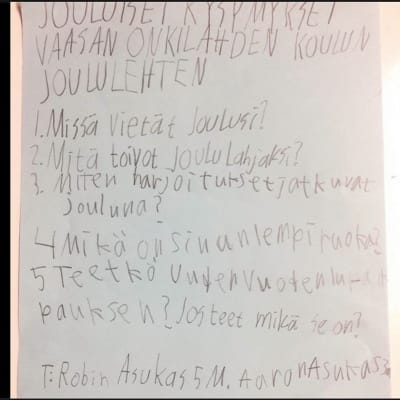 JOULUISET KYSYMYKSET
VAASAN ONKILAHDEN KOULUN
JOULULEHTEN
1. Missä vietät Joulusi?
2. Mitä toivot JOULULahjaksi?
3. Miten harjoituksetjatkuvat
Jouluna?
4 Mikä on sinun lempiruoka?
5 Teetkö uudenvuotenlu-
pauksen? Jos teet mikä se on?
T: Robin Asukas 5M. Aaron Asukas